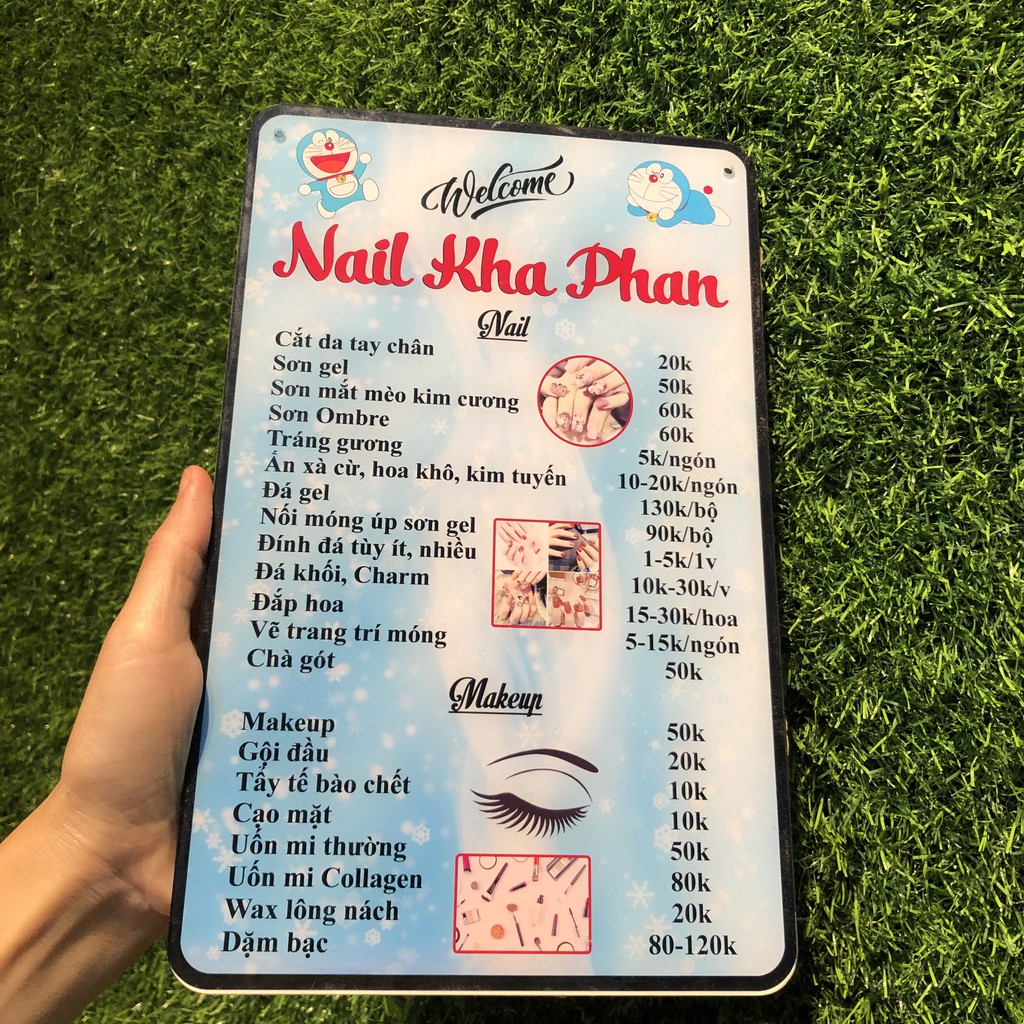 Welcome
Nail Kha Phan
Nail
Cắt da tay chân 20k
Sơn gel 50k
Sơn mắt mèo kim cương 60k
Sơn Ombre 60k
Tráng gương 5k/ngón
Ấn xà cừ, hoa khô, kim tuyến 10-20k/ngón
Đá gel 130k/bộ
Nối móng úp sơn gel 90k/bộ
Đính đá tùy ít, nhiều 1-5k/1v
Đá khối, Charm 10k-30k/v
Đắp hoa 15-30k/hoa
Vẽ trang trí móng 5-15k/ngón
Chà gót 50k
Makeup
Makeup 50k
Gội đầu 20k
Tẩy tế bào chết 10k
Cạo mặt 10k
Uốn mi thường 50k
Uốn mi Collagen 80k
Wax lông nách 20k
Dặm bạc 80-120k